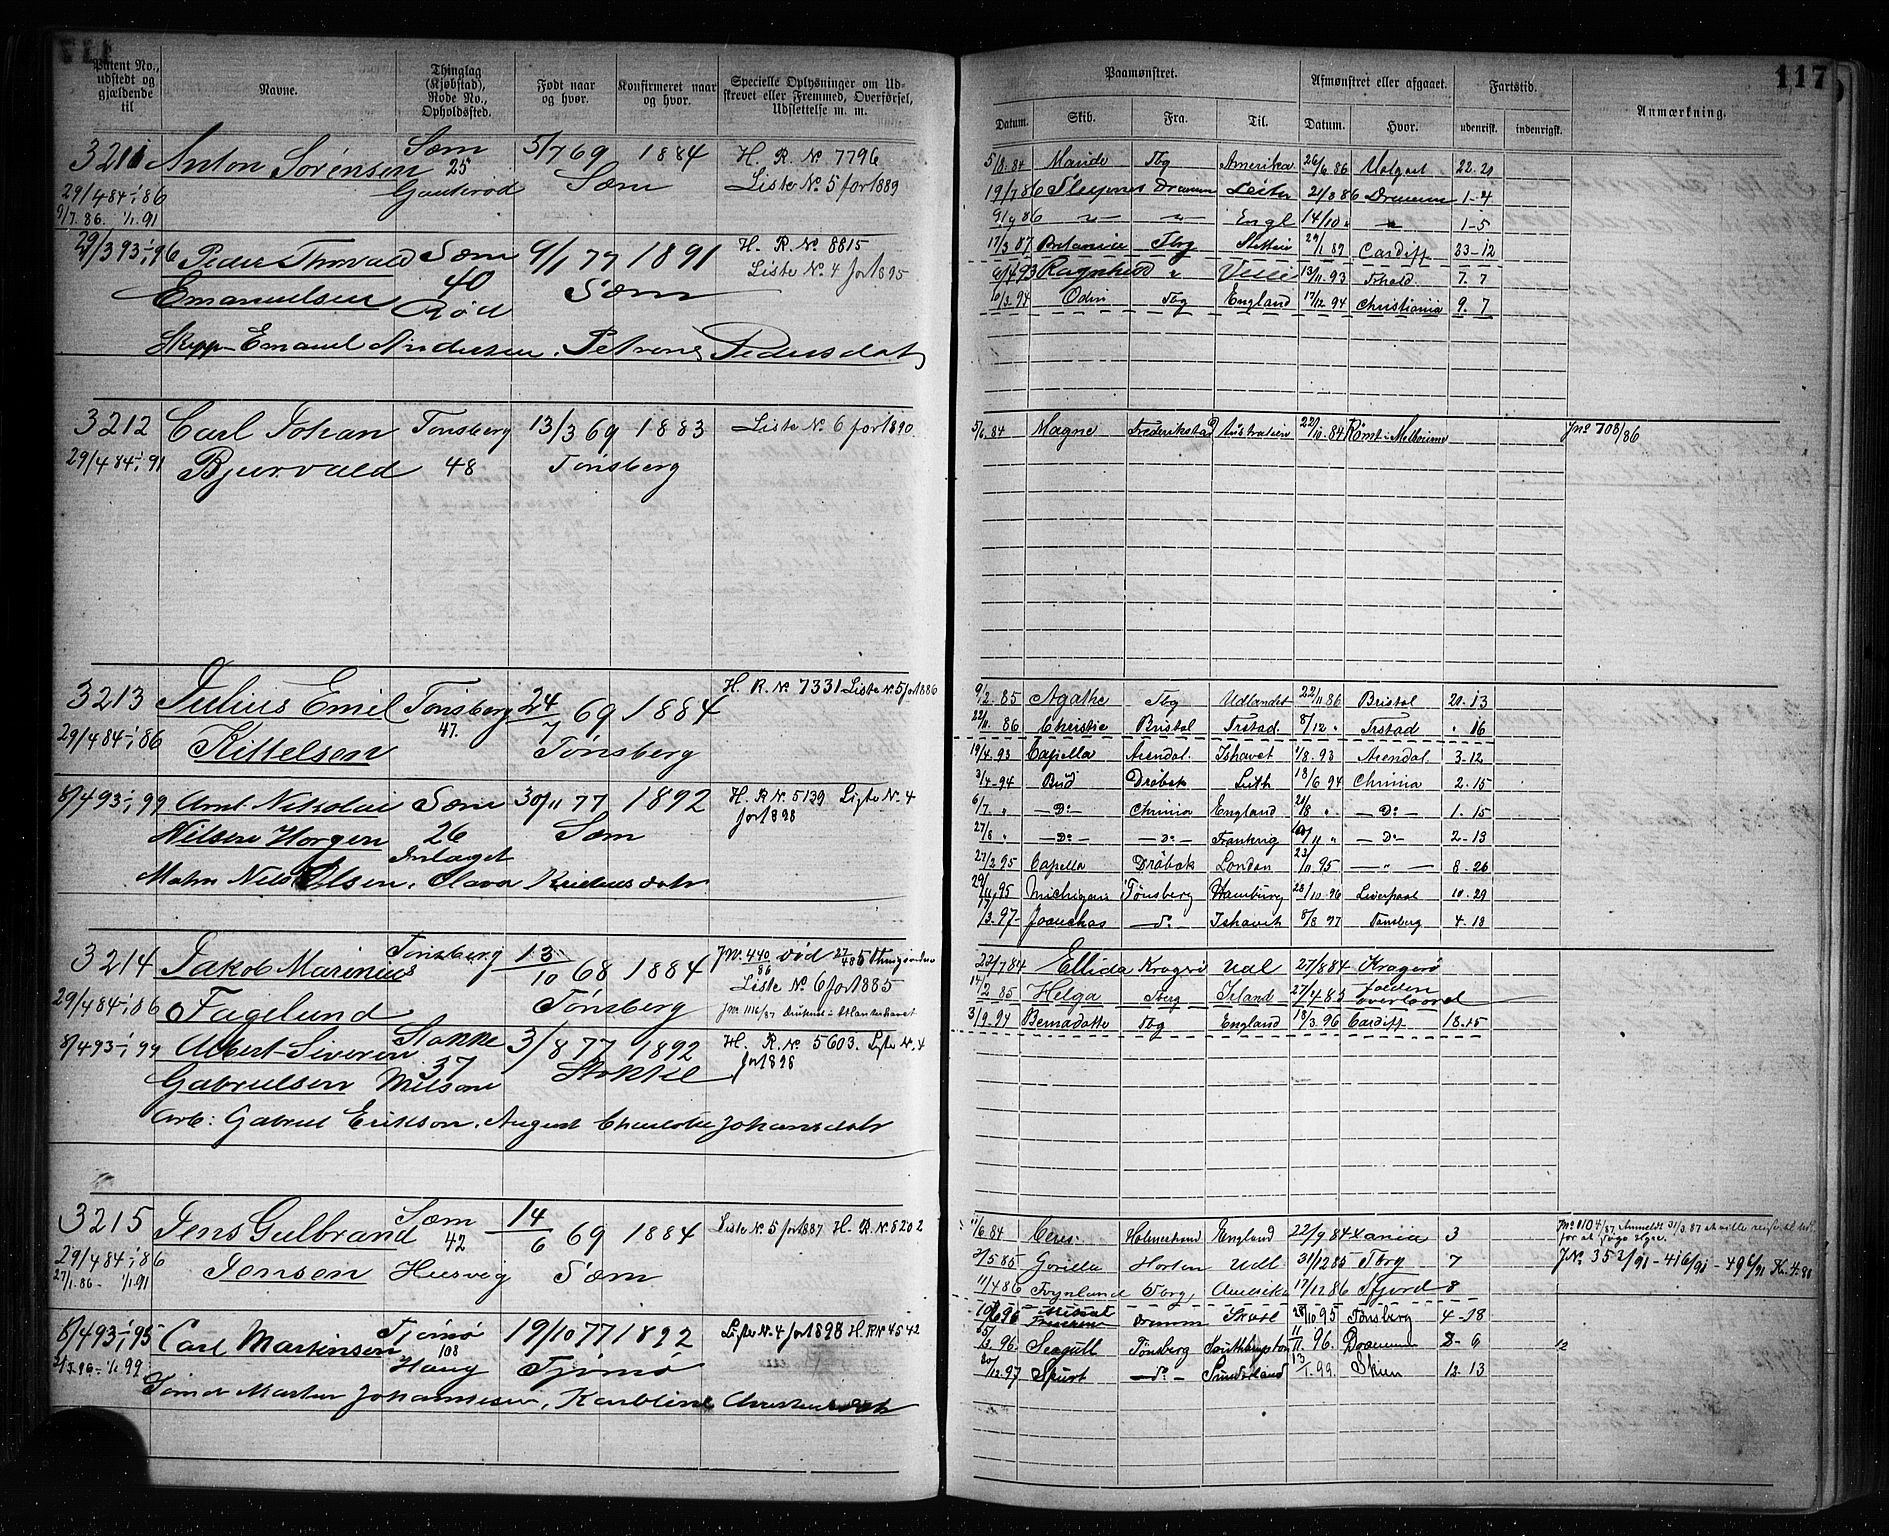 117
Patent No., udstedt og gjældende til | Navne. | Thinglag (Kjøbstad), Rode No., Opholdssted. | Født naar og hvor. | Konfirmeret naar og hvor. | Specielle Oplysninger om Udskrevet eller Fremmed, Overførsel, Udslettelse m. m.
Paamønstret. | Afmønstret eller afgaaet. | Fartstid. | Anmærkning.
Datum. | Skib. | Fra. | Til. | Datum. | Hvor. | udenrigsk. | indenrigsk.
3211 Anton Sørensen Sæm 5/7 69 1884 H. R. No 7796
25 Sæm Liste No. 5 for 1889
29/4 84-1/1 86
9/7 86. 1/1 91
29/3 93-1/1 96 Peder Thorvald Sæm 9/1 77 1891 H. R. No. 8815
40 Liste No. 4 for 1895
Emanuelsen Rød Sæm
Skipp. Emanuel Andersen. Pedersdatr
3212 Carl Johan Tønsberg 13/3 69 1883 Liste No. 6 for 1890.
29/4 84-1/1 91 Bjervald 48 Tønsberg
3213 Julius Emil Tønsberg 24/7 69 1884 H. R. No. 7331 Liste No. 5 for 1886
47.
29/4 84-1/1 86 Kittelsen Tønsberg
8/4 93-1/1 99 Nikolai Sæm 30/11 77 1892 H. R. No. 5139 Liste No. 4
Nilsen Horgen 26 Sæm for 1898
Matr. Nils Olsen.
3214 Jakob Marinius Tønsberg 13/10 68 1884 J No. 440/86 død
Liste No. 6 for 1885
29/4 84-1/1 86 Fagelund Tønsberg
8/4 93-1/1 99 Albert Severin Stokke 3/8 77 1892 H. R. No 5603. Liste No. 4
37 for 1898
Gabrielsen
Arb: Gabriel Erikson. Johansdatr
3215 Jens Gulbrand Sæm 14/6 69 1884 Liste No. 5 for 1887 H. R. No. 8202
42
29/4 84-1/1 86
27/1 86- 1/1 91 Jensen Husvig Sæm
8/4 93-1/1 95 Carl Martinsen Tjømø 19/10 77 1892 Liste No. 4 for 1898 H. R. No 4542
108
Haug Tjømø
Johannesen,
5/8. 84 Tbg Amerika 26/6 86 22. 21
19/7 86 Sleipner Drammen Leith 21/8 86 Drammen 1-4
Engl 14/10 1-5
17/3 87 Britania Tbg Stettin 29/1 89 Cardiff 33-12
6/4 93 Ragnhild 13/11. 93 Fthald. 7. 7
10/3. 94 Odin Tbg England 17/12 94 Christiania 9. 7
5/6. 84 Magne Frederikstad Australien 22/10. 84 Rømt i Melbourne Jno 708/86
9/2. 85 Agathe Tbg Udlandet 22/11 86 Bristol 20. 13
22/11. 86 Christie Bristol Frstad. 8/12 " Frstad " 16
19/4. 93 Capella Arendal. Ishavet 1/8. 93 Arendal. 3-12
3/4-94 Bud Drøbak Leith 18/6 94 Chrania 2. 15
6/7. " -Do- Chrania England 21/8 " -Do- 1. 15
27/8 " -Do- -Do- Frankrig -Do- 2. 13
27/3 95 Capella Drøbak London 23/10 95 -"- 8. 26
29/11 95 Michigan Tønsberg Hamburg 28/10. 96 Liverpool 10. 29
17/3. 97- -Do- Ishavet 8/8 97 Tønsberg 4. 18
22/7 84 Ellida Kragerø Udl 27/8 84 Kragerø
14/2 85 Helga Tberg Island 27/4 85 falden overboord
3/9. 94 Bernadotte Tbg England 18/3. 96 Cardiff 18. 15
11/6 84 Ceres Holmestrand England 22/9 84 3
2/5 85 Gorilla Horten Udl 31/12 85 Tbrg 7
11/4 86 Fynland Tbrg, Amerika 17/12 86 8
28/10 95 Tønsberg 4-18
Seagull Tønsberg Southampton 11/11. 96. Drammen 8- 6 12
30/12. 97 Spurt -Do- Sunderland 13/1. 99. Skien 12. 13